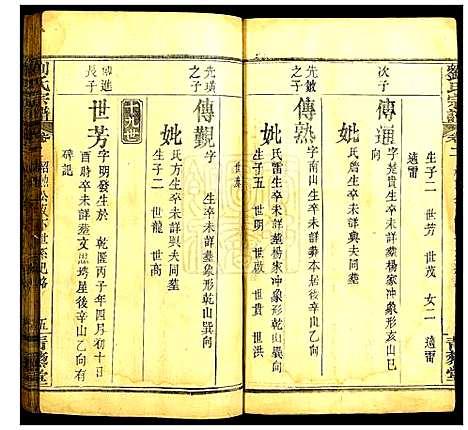 劉氏宗譜
生子二 世芳 世茂 女二 遠雷
遠雷
次子
傳通
字楚貴生卒未詳葬楊家冲象形亥山巳
向
妣
氏詹生卒未詳與夫同墓
先鐓
次子
傳熟
字南山生卒未詳葬本居後
妣
氏雷生卒未詳葬楊家冲象形乾山巽向
生子五 世明 世啟 世貴 世洪
世
先璜
子
傳觀
字 生卒未詳葬象形乾山巽向
妣
氏方生卒未詳與夫同墓
生子二 世龍 世高
十九世
進
長子
世芳
字明發生於 乾隆丙子年四月初十日
酉時卒未詳葬文思塆星後辛山乙向有
碑記
劉氏宗譜
世系
五 青藜堂
青藜堂